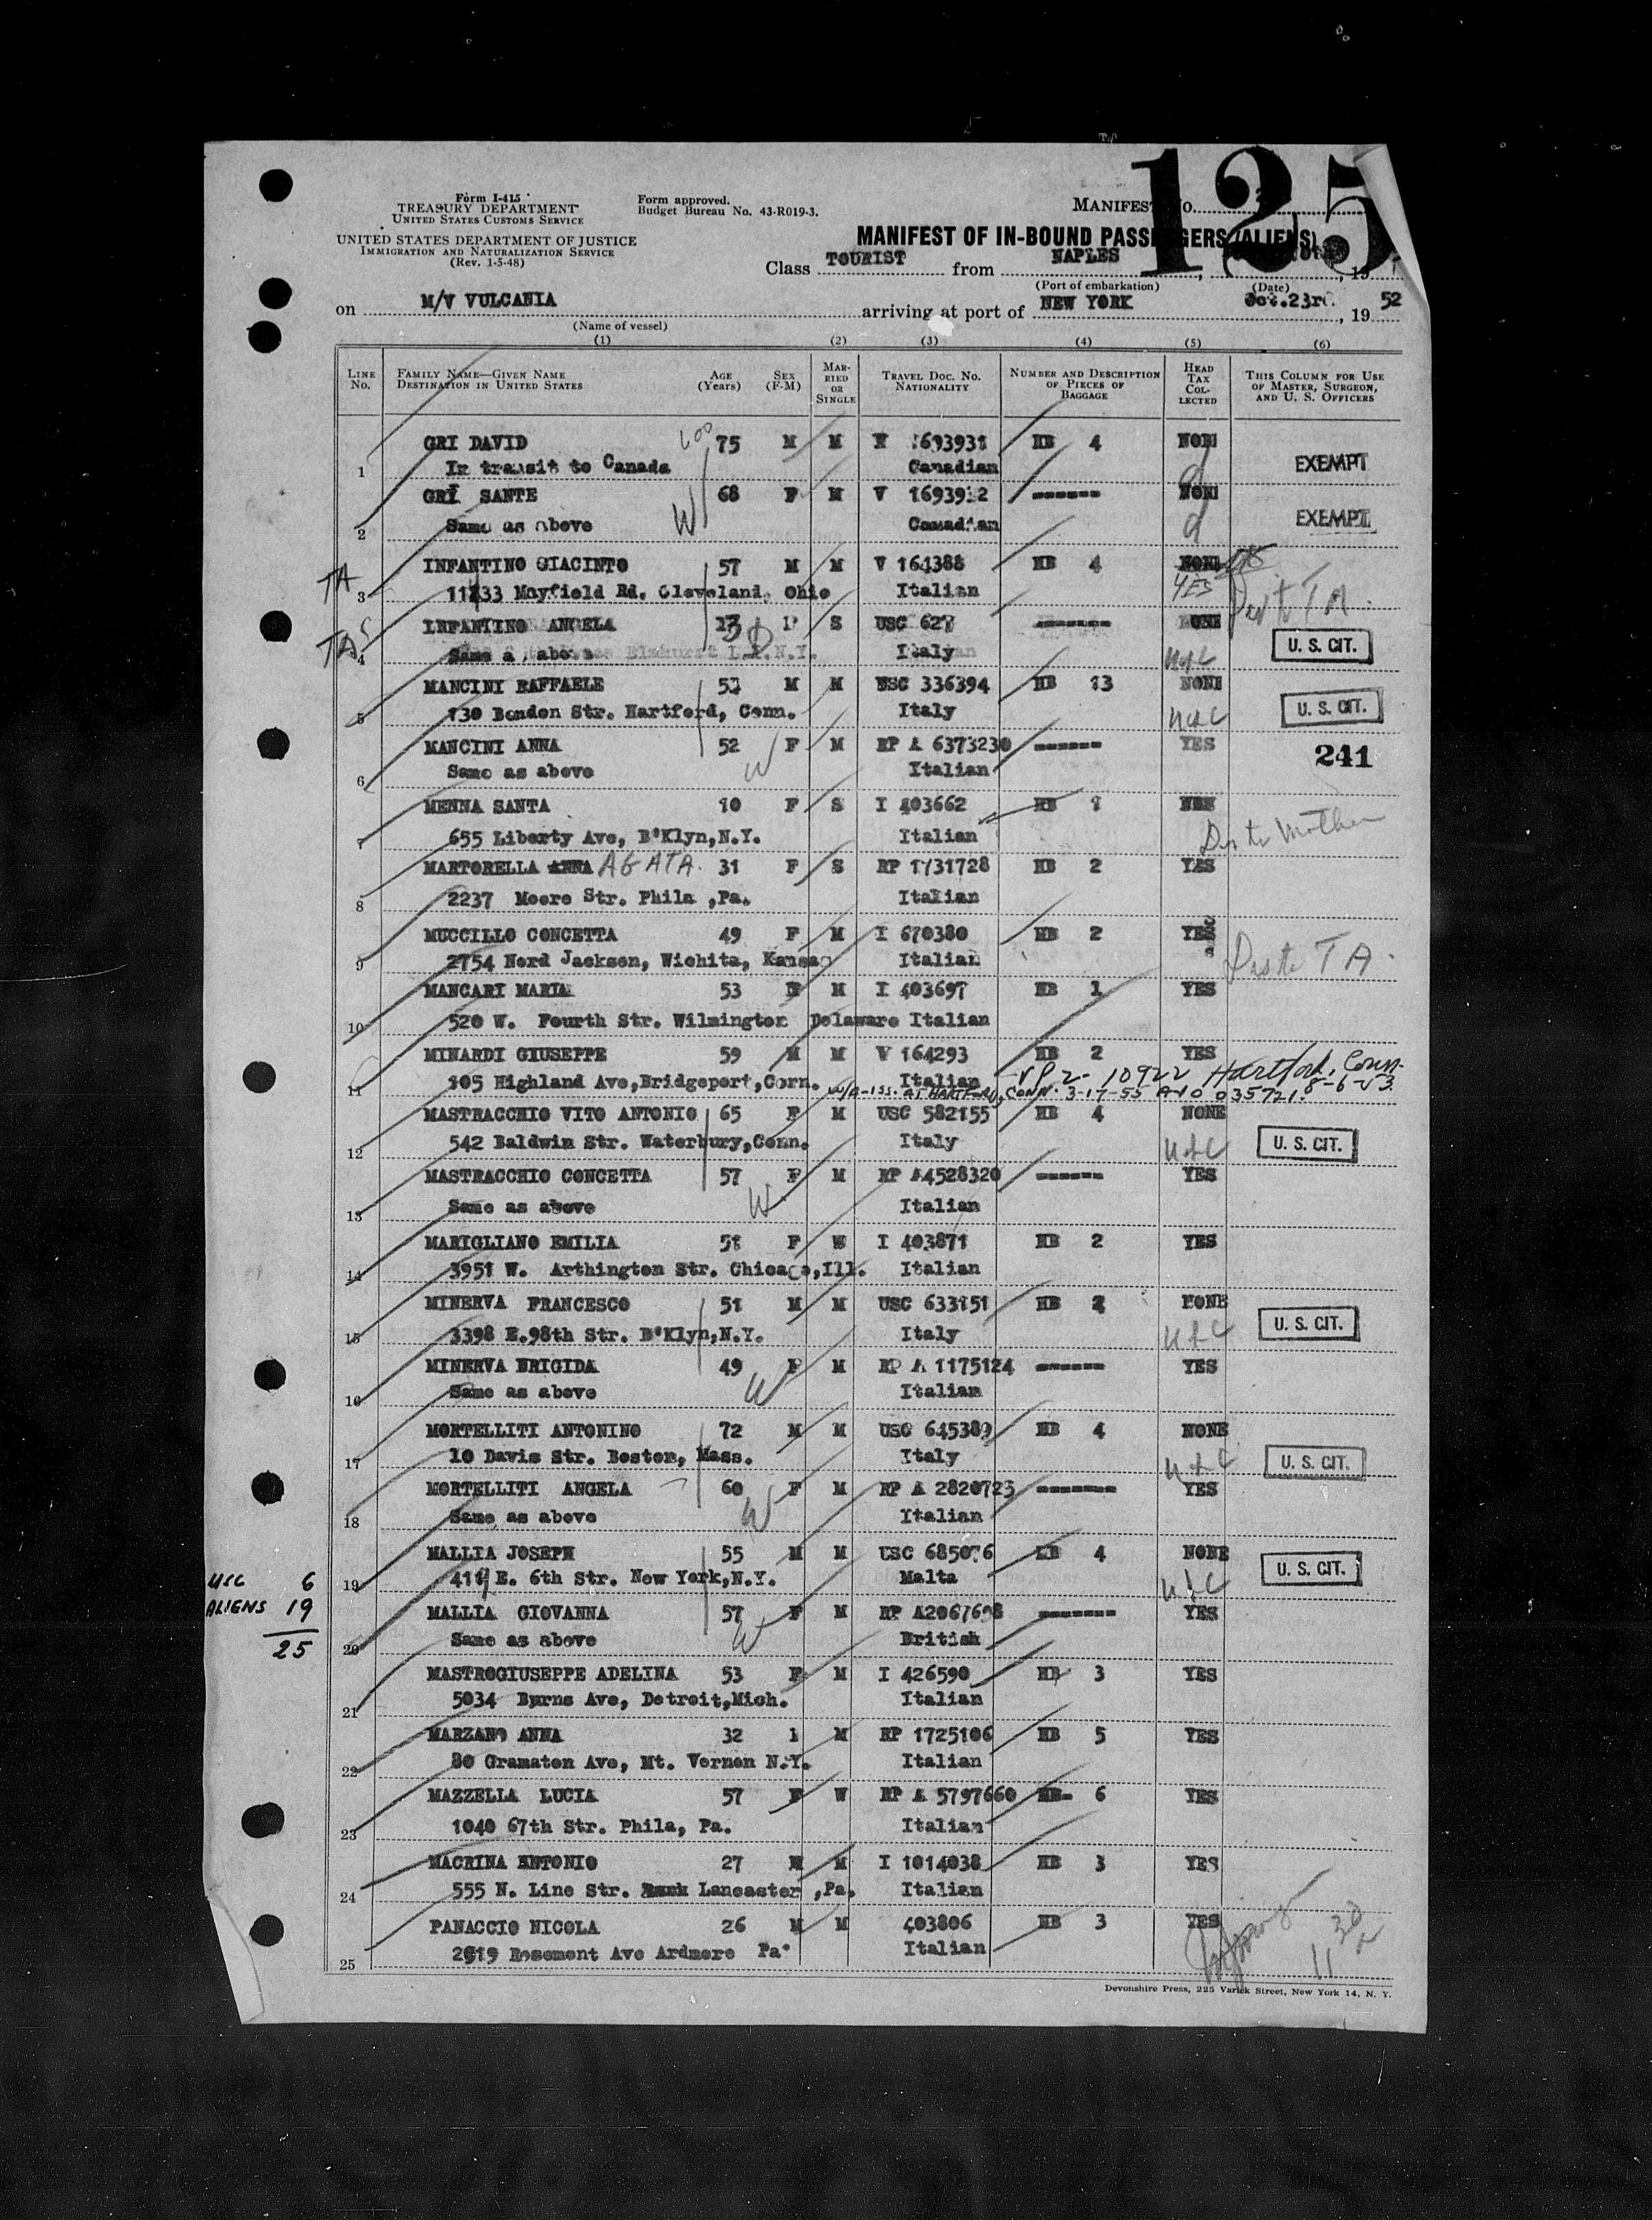 125
Form I-415
TREASURY DEPARTMENT
UNITED STATES CUSTOMS SERVICE
Form approved.
Budget Bureau No. 43-R019-3.
MANIFEST NO.
UNITED STATES DEPARTMENT OF JUSTICE
IMMIGRATION AND NATURALIZATION SERVICE
(Rev. 1-5-48)
MANIFEST OF IN-BOUND PASSENGERS (ALIENS)
Class TOURIST from NAPLES, 19
(Port of embarkation) (Date)
on M/V VULCANIA arriving at port of NEW YORK Oct.23rd, 19 52
(Name of vessel)
(1) (2) (3) (4) (5) (6)
LINE No. FAMILY NAME—GIVEN NAME DESTINATION IN UNITED STATES AGE (Years) SEX (F-M) MARRIED OR SINGLE TRAVEL DOC. NO. NATIONALITY NUMBER AND DESCRIPTION OF PIECES OF BAGGAGE HEAD TAX COLLECTED THIS COLUMN FOR USE OF MASTER, SURGEON, AND U. S. OFFICERS
GRI DAVID 75 M M HB 4 NONE
1 In transit to Canada Canadian EXEMPT
GRI SANTE 68 F M V 1693932 ------ NONE
2 Same as above Canadian EXEMPT
INFANTINO GIACINTO 57 M M V 164388 HB 4 NONE
TA 3 Mayfield Rd. Cleveland, Ohio Italian YES
INFANTINO ANGELA S USC ------ NONE
TA 4 Same as above Italy U.S. CIT.
MANCINI RAFFAELE M M USC 336394 HB 13 NONE
5 130 Bonden Str. Hartford, Conn. Italy U. S. CIT.
MANCINI ANNA 52 F M RP A 6373230 ------ YES 241
6 Same as above W Italian
MENNA SANTA 10 F S I 403662 HB 1 NON
7 655 Liberty Ave, B'Klyn,N.Y. Italian Mother
MARTORELLA ANNA AGATA. 31 F S RP 1731728 HB 2 YES
8 2237 Moore Str. Phila ,Pa. Italian
MUCCILLO CONCETTA 49 F M I 670380 HB 2 YES
9 2754 Nord Jackson, Wichita, Kansas Italian TA.
MANCARI MARIA 53 F M I 403697 HB 1 YES
10 520 W. Fourth Str. Wilmington Delaware Italian
MINARDI GIUSEPPE 59 M M V 164293 HB 2 YES
11 105 Highland Ave,Bridgeport,Conn. Italian VP2- 10922 Hartford, Conn. 8-6-53
AT HARTFORD, CONN. 3-17-55 A10 035721.
MASTRACCHIO VITO ANTONIO 65 F M USC 582155 HB 4 NONE
12 542 Baldwin Str. Waterbury,Conn. Italy U. S. CIT.
MASTRACCHIO CONCETTA 57 F M RP A4528320 ------ YES
13 Same as above W Italian
MARIGLIANO EMILIA 51 F W I 403871 HB 2 YES
14 3951 W. Arthington Str. Chicago,Ill. Italian
MINERVA FRANCESCO 51 M M USC 633151 HB 2 NONE
15 3398 E.98th Str. B'Klyn,N.Y. Italy U. S. CIT.
MINERVA BRIGIDA 49 F M RP A 1175124 ------ YES
16 Same as above W Italian
MORTELLITI ANTONINO 72 M M USC 645389 HB 4 NONE
17 10 Davis Str. Boston, Mass. Italy U. S. CIT.
MORTELLITI ANGELA 60 F M RP A 2820723 ------- YES
18 Same as above W Italian
MALLIA JOSEPH 55 M M USC 685076 HB 4 NONE
19 E. 6th Str. New York,N.Y. Malta U. S. CIT.
USC 6
ALIENS 19
25
MALLIA GIOVANNA 57 F M RP A2067698 ------- YES
20 Same as above W British
MASTROGIUSEPPE ADELINA 53 F M I 426590 HB 3 YES
21 5034 Burns Ave, Detroit,Mich. Italian
MARZANO ANNA 32 M RP 1725106 HB 5 YES
22 80 Gramaton Ave, Mt. Vernon N.Y. Italian
MAZZELLA LUCIA 57 F W RP A 5797660 HB- 6 YES
23 1040 67th Str. Phila, Pa. Italian
MACRINA ANTONIO 27 M M I 1014038 HB 3 YES
24 555 N. Line Str. Lancaster ,Pa. Italian
PANACCIO NICOLA 26 M M 403806 HB 3 YES
25 Rosemont Ave Ardmore Pa. Italian
Devonshire Press, 225 Varick Street, New York 14, N. Y.